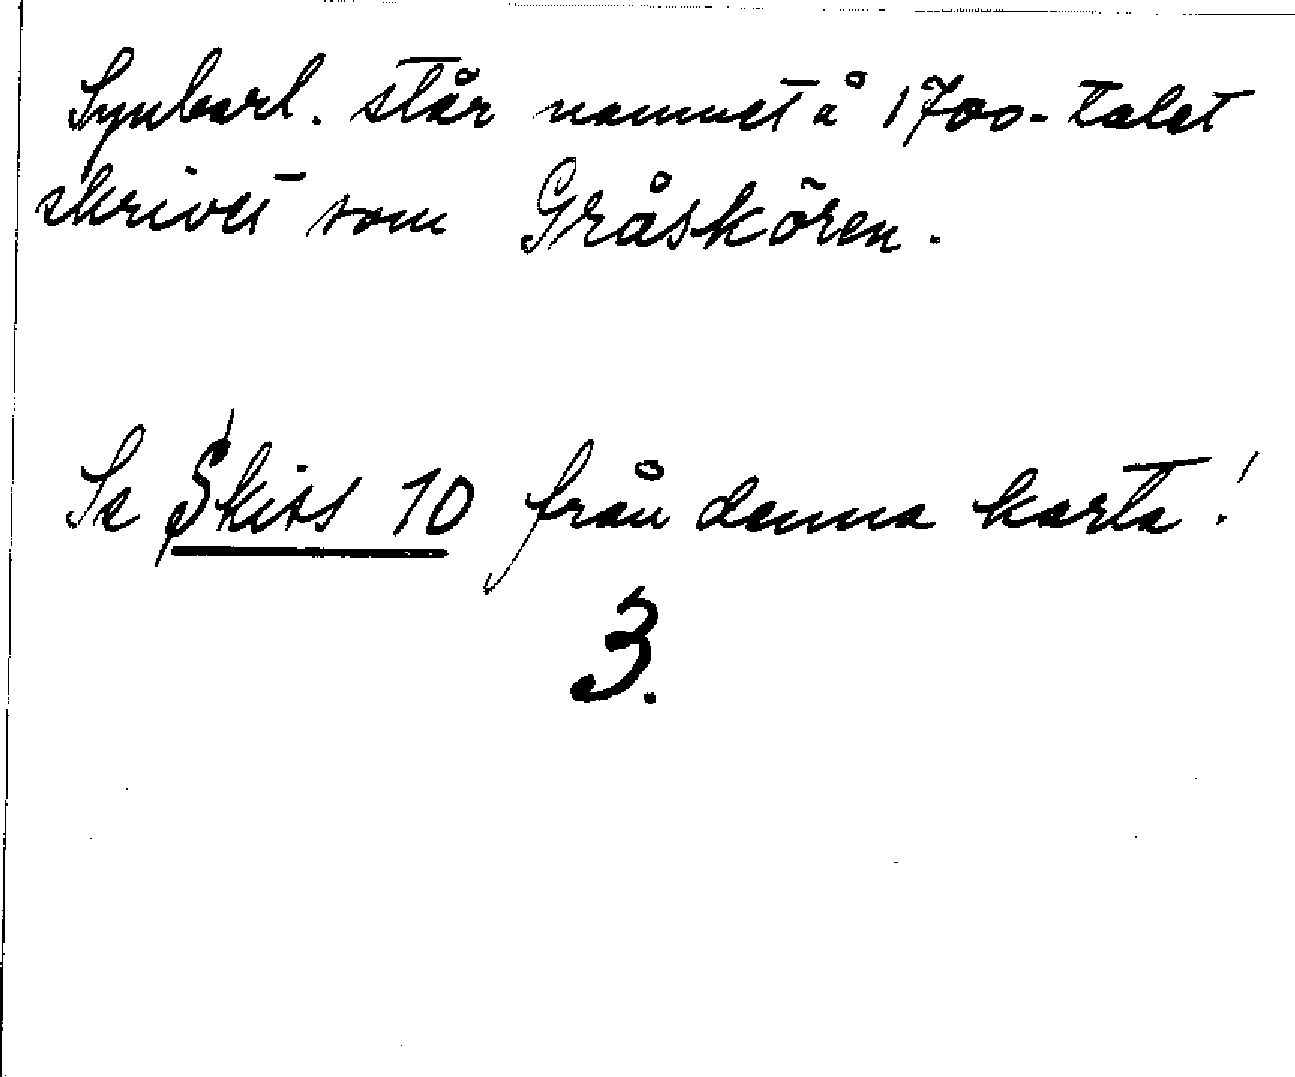 Synbarl. står namnet å 1700-talet
skrivet som Gråskören.
Se Skiss 10 från denna karta!
3.